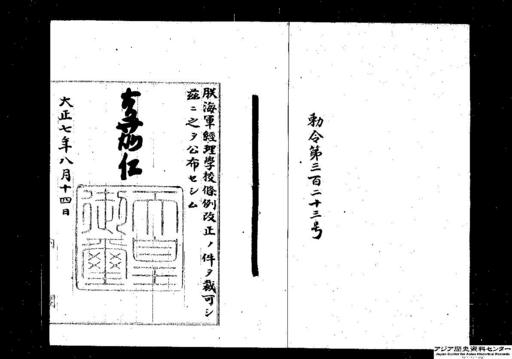 勅令第三百二十三号
朕海軍經理學校條例改正ノ件ヲ裁可シ
茲ニ之ヲ公布セシム
嘉仁
天皇
御璽
大正七年八月十四日
アジア歴史資料センター
Japan Center for Asian Historical Records